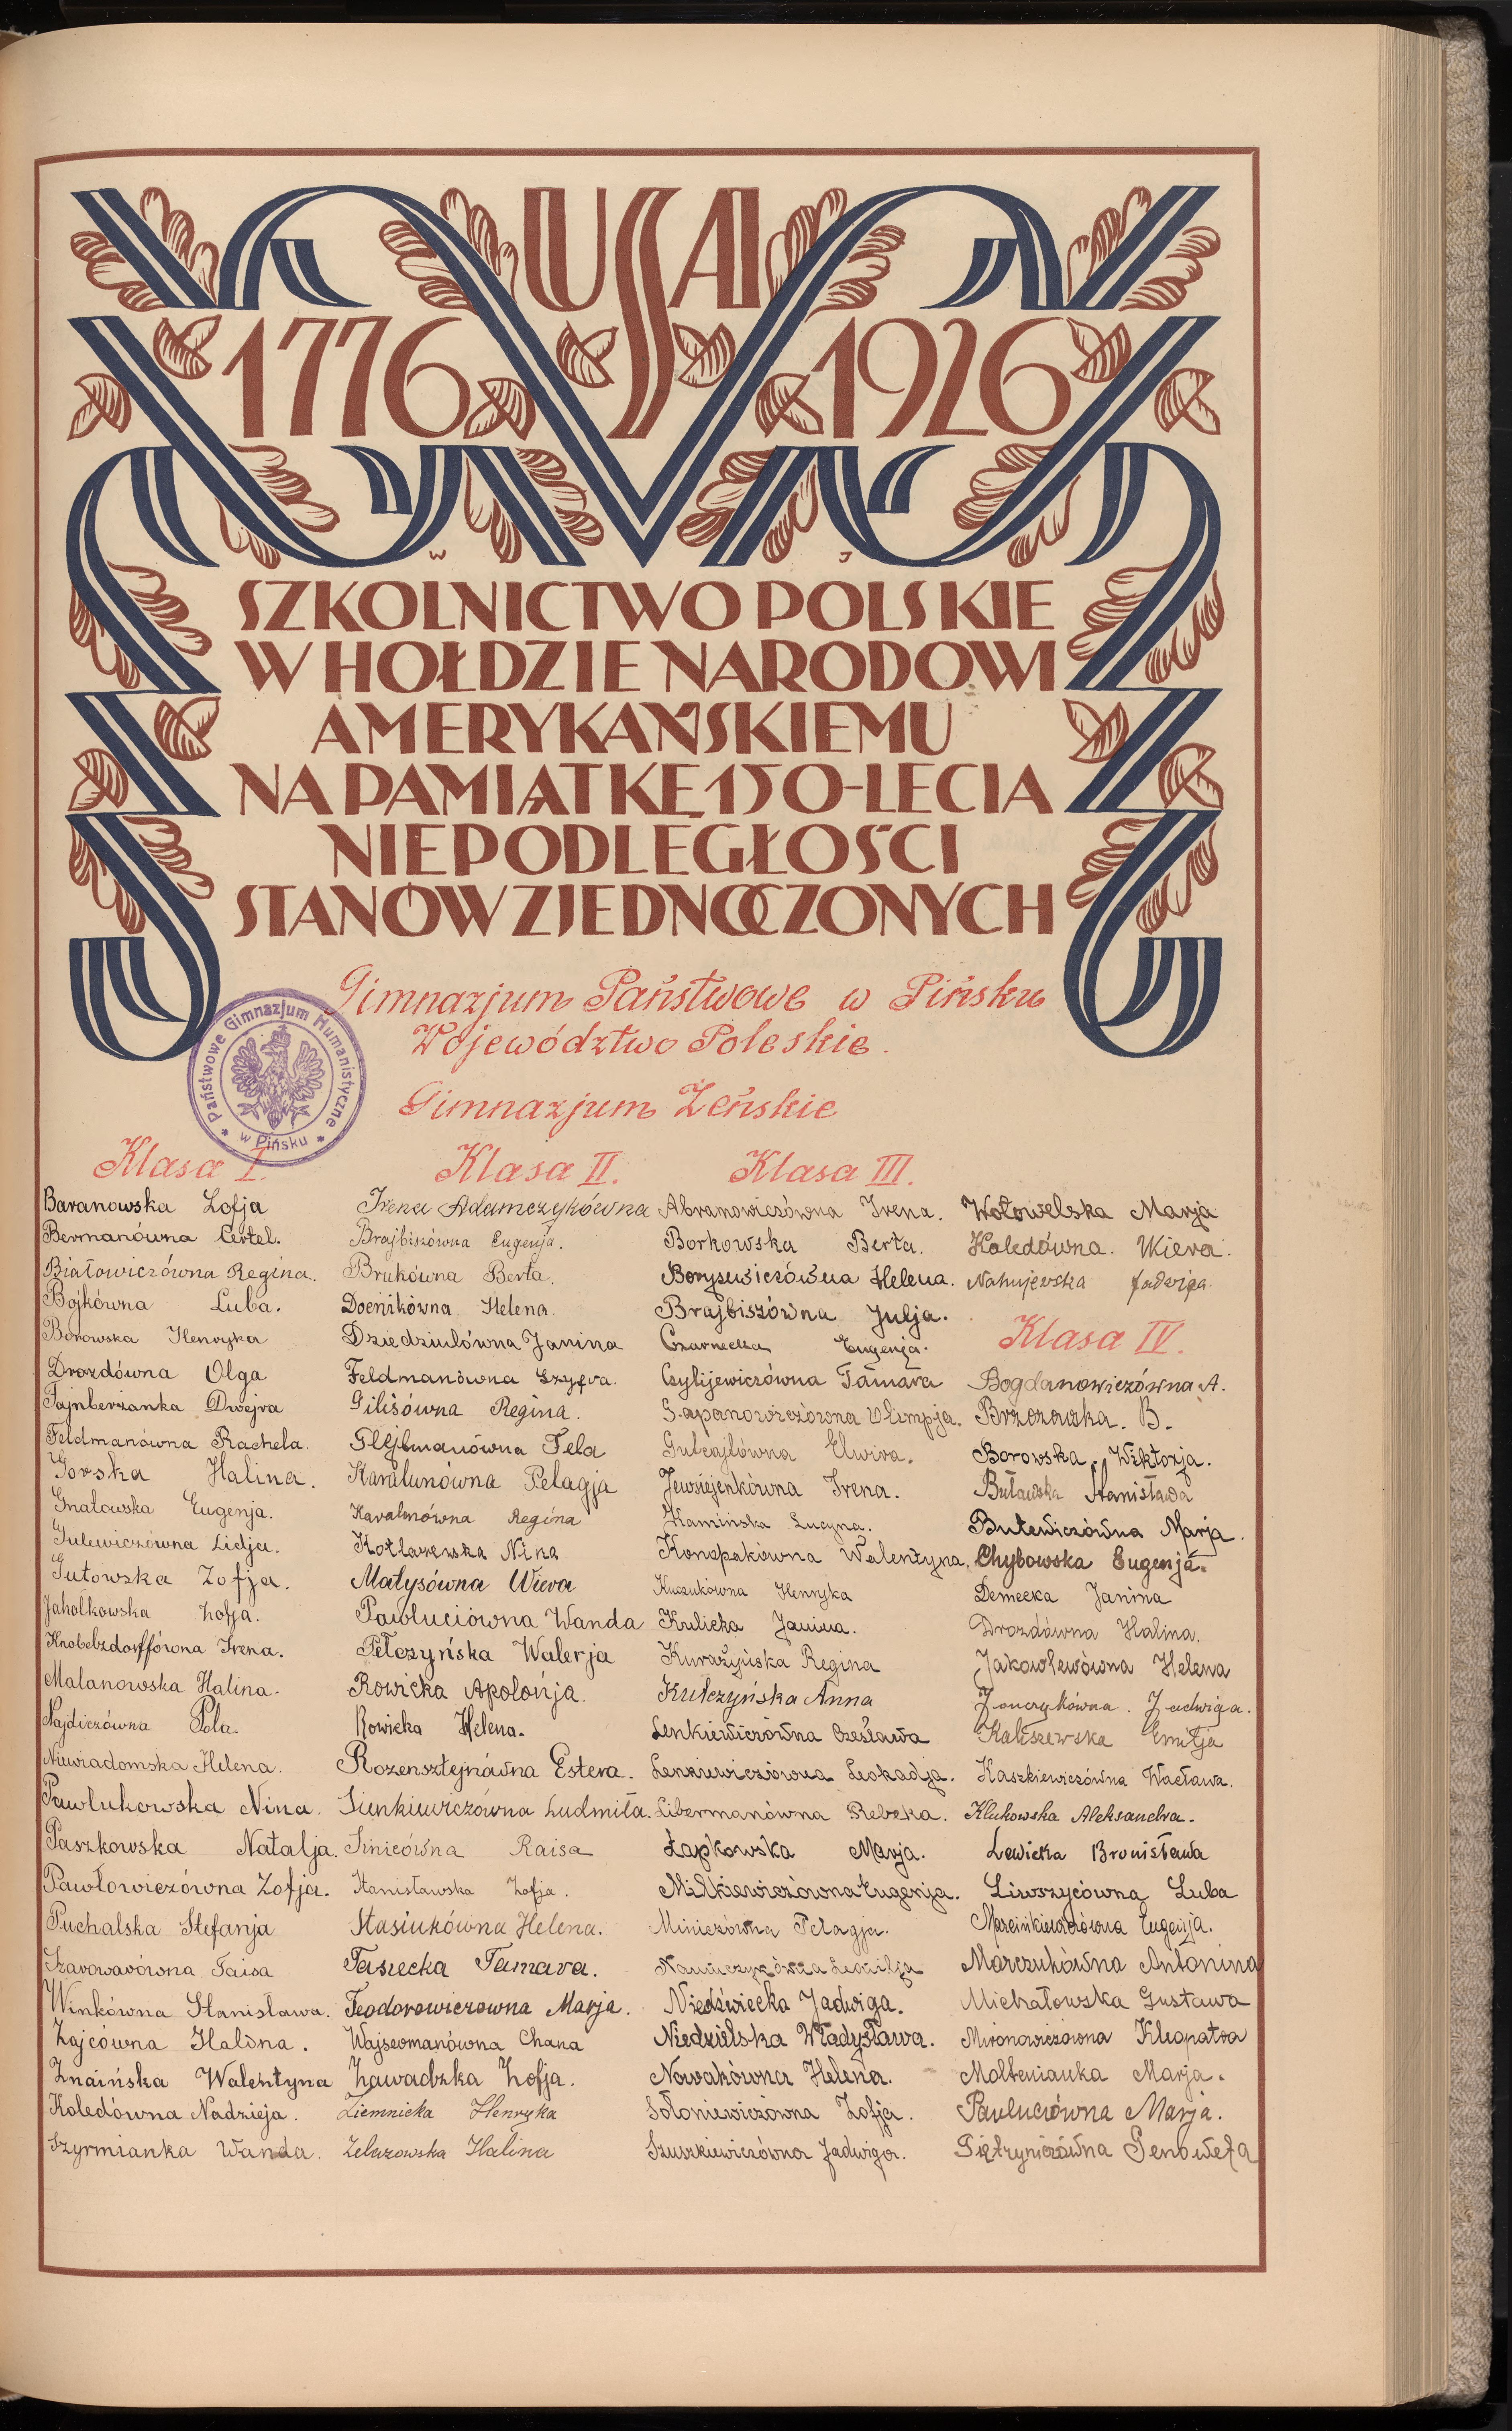 USA
1776 1926
W J
SZKOLNICTWO POLSKIE
W HOŁDZIE NARODOWI
AMERYKAŃSKIEMU
NA PAMIĄTKĘ 150-LECIA
NIEPODLEGŁOŚCI
STANÓW ZJEDNOCZONYCH
Gimnazjum Państwowe w Pińsku
Województwo Poleskie.
Państwowe Gimnazjum Humanistyczne * w Pińsku *
Gimnazjum Żeńskie
Klasa I.
Baranowska Zofja
Bermanówna Certel.
Białowiczówna Regina.
Bojkówna Luba.
Borowska Henryka
Drozdówna Olga
Fajnberżanka Dwejra
Feldmanówna Rachela.
Gorska Halina.
Gnatowska Eugenja.
Gulewiczówna Lidja.
Gutowska Zofja.
Jahołkowska Zofja.
Knobelzdorffówna Irena.
Malanowska Halina.
Najdiczówna Pola.
Niewiadomska Helena.
Pawlukowska Nina.
Paszkowska Natalja.
Pawłowiczówna Zofja.
Puchalska Stefanja
Szarowarówna Taisa
Winkówna Stanisława.
Zajcówna Halina.
Znaińska Walentyna
Koledówna Nadzieja.
Szyrmianka Wanda.
Klasa II.
Irena Adamczykówna
Brajbiszówna Eugenja.
Brukówna Berta.
Doenikówna Helena.
Dziedziulówna Janina
Feldmanówna Szyfra.
Gilisówna Regina.
Glejbmanówna Fela
Karalunówna Pelagja
Karalunówna Regina
Kotlarewska Nina
Małysówna Wiera
Pawluciówna Wanda
Pełczyńska Walerja
Rowicka Apolonja.
Rowicka Helena.
Rozensztejnówna Estera.
Sienkiewiczówna Ludmiła.
Sinicówna Raisa
Stanisławska Zofja.
Stasiukówna Helena.
Tasiecka Tamara.
Teodorowiczówna Marja.
Wajsermanówna Chana
Zawadzka Zofja.
Ziemnicka Henryka
Żelazowska Halina
Klasa III.
Abramowiczówna Irena.
Borkowska Berta.
Borysewiczówna Helena.
Brajbiszówna Julja.
Czarnecka Eugenja.
Czylijewiczówna Tamara
Gapanowiczówna Olimpja.
Gulcajłówna Elwira.
Jewsiejenkówna Irena.
Kamińska Lucyna.
Konopakówna Walentyna.
Kuczukówna Henryka
Kulicka Janina.
Kurażyńska Regina
Kulczyńska Anna
Lenkiewiczówna Czesława
Lenkiewiczówna Leokadja.
Libermanówna Rebeka.
Łapkowska Marja.
Milkiewiczówna Eugenja.
Miniczówna Pelagja.
Naumczykówna
Niedźwiecka Jadwiga.
Niedzielska Władysława.
Nowakówna Helena.
Sołoniewiczówna Zofja.
Szuszkiewiczówna Jadwiga.
Wołowelska Marja
Koledówna. Wiera.
Nahujewska Jadwiga.
Klasa IV.
Bogdanowiczówna A.
Brzozowska. B.
Borowska Wiktorja.
Buławska Stanisława
Butewiczówna Marja.
Chybowska Eugenja.
Demecka Janina
Drozdówna Halina.
Jakowlewówna Helena
Janczykówna. Jadwiga.
Kaliszewska Emilja
Kaszkiewiczówna Wacława.
Klukowska Aleksandra.
Lewicka Bronisława
Liwszycówna Luba
Marcinkiewiczówna Eugenja.
Marczukówna Antonina
Michałowska Gustawa
Mironowiczówna Kleopatra
Molbenianka Marja.
Pawluciówna Marja.
Pietryniczówna Genowefa